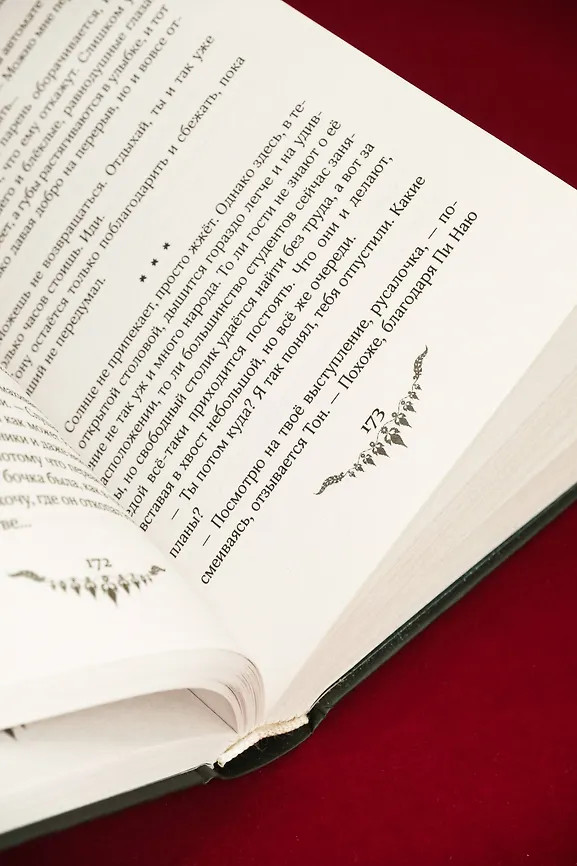 как может
потому что пере
бочка была, как
хочу, где он откопал
ве...
172
автомате
Можно мне
парень оборачивается,
что ему откажут. Слишком
него и блёклые, равнодушные глаза
ет, а губы растягиваются в улыбке, и тот
ко давая добро на перерыв, но и вовсе от-
можешь не возвращаться. Отдыхай, ты и так уже
олько часов стоишь. Иди.
ону остаётся только поблагодарить и сбежать, пока
ший не передумал.
* * *
Солнце не припекает, просто жжёт. Однако здесь, в те-
открытой столовой, дышится гораздо легче и на удив-
ение не так уж и много народа. То ли гости не знают о её
асположении, то ли большинство студентов сейчас заня-
ы, но свободный столик удаётся найти без труда, а вот за
едой всё-таки приходится постоять. Что они и делают,
вставая в хвост небольшой, но всё же очереди.
— Ты потом куда? Я так понял, тебя отпустили. Какие
планы?
— Посмотрю на твоё выступление, русалочка, — по-
смеиваясь, отзывается Тон. — Похоже, благодаря Пи Наю
173